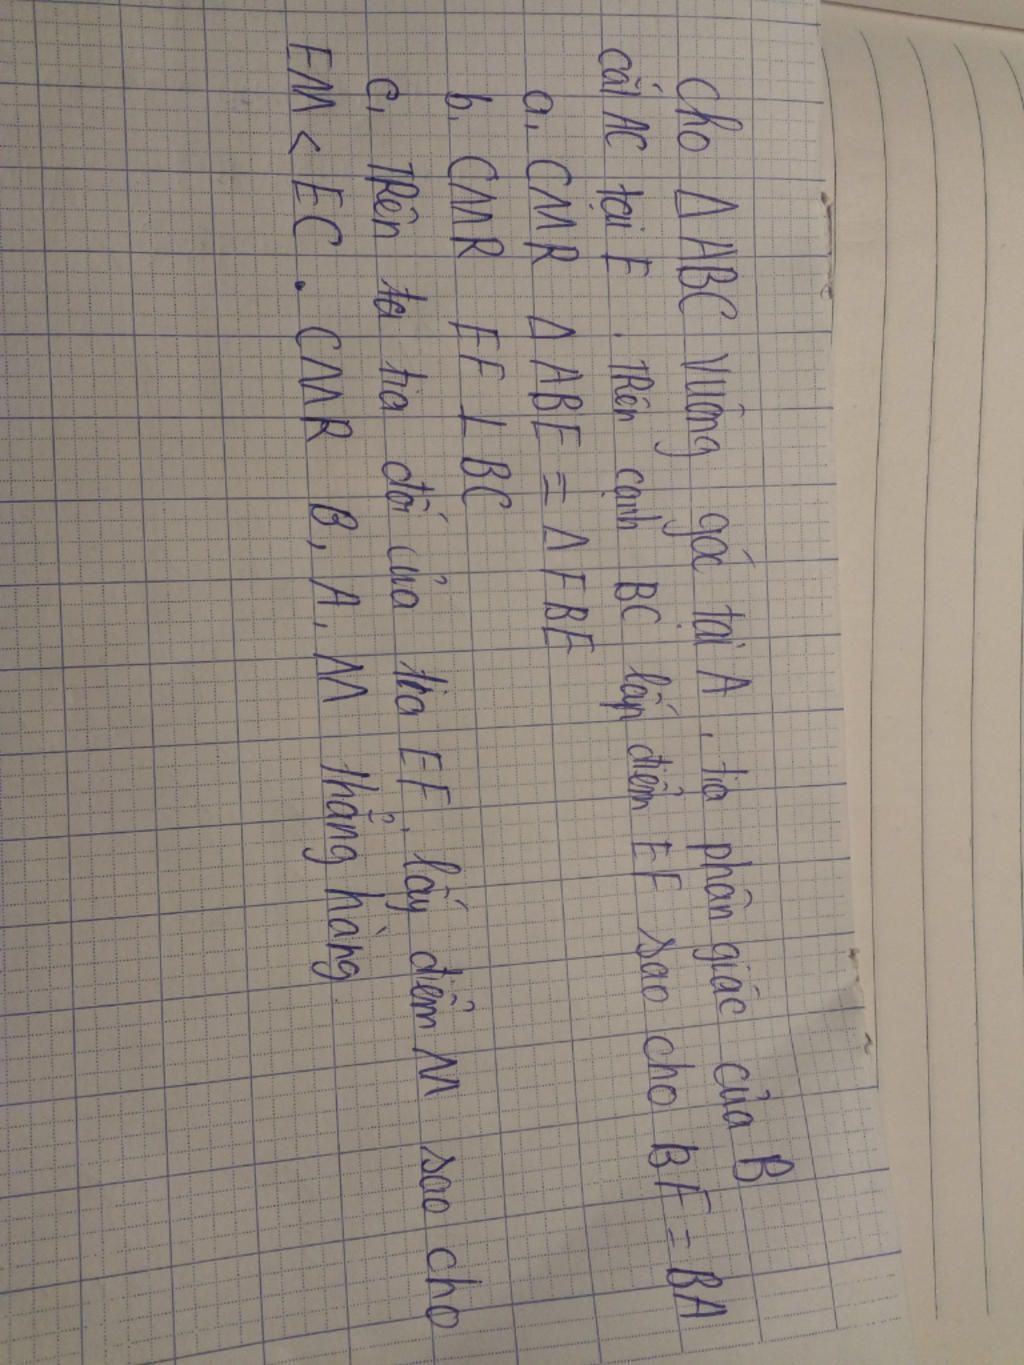 Cho Δ ABC vuông góc tại A, tia phân giác của B
cắt AC tại E. Trên cạnh BC lấy điểm EF sao cho BF = BA
a, CMR Δ ABE = Δ FBE
b, CMR EF ⊥ BC
c, Trên ta tia đối của tia EF. lấy điểm M sao cho
EM < EC. CMR B, A, M thẳng hàng